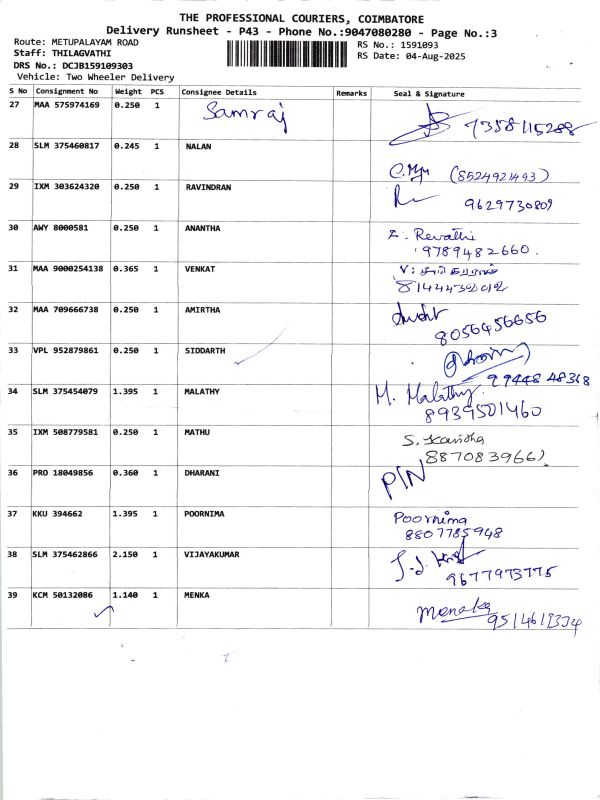 THE PROFESSIONAL COURIERS, COIMBATORE
Delivery Runsheet - P43 - Phone No.:9047080280 - Page No.:3
Route: METUPALAYAM ROAD
RS No.: 1591093
Staff: THILAGVATHI
RS Date: 04-Aug-2025
DRS No.: DCJB159109303
Vehicle: Two Wheeler Delivery
S No Consignment No Weight PCS Consignee Details Remarks Seal & Signature
27 MAA 575974169 0.250 1 Samraj 7358115288
28 SLM 375460817 0.245 1 NALAN
(8524921493)
29 IXM 303624320 0.250 1 RAVINDRAN
9629730809
30 AWY 8000581 0.250 1 ANANTHA
Revathi
9789482660.
31 MAA 9000254138 0.365 1 VENKAT
32 MAA 709666738 0.250 1 AMIRTHA
8056456656
33 VPL 952879861 0.250 1 SIDDARTH
99448 48368
34 SLM 375454079 1.395 1 MALATHY M. Malathy
8939501460
35 IXM 508779581 0.250 1 MATHU
36 PRO 18049856 0.360 1 DHARANI PIN
37 KKU 394662 1.395 1 POORNIMA Poornima
8807785948
38 SLM 375462866 2.150 1 VIJAYAKUMAR
9677973775
39 KCM 50132086 1.140 1 MENKA Menaka